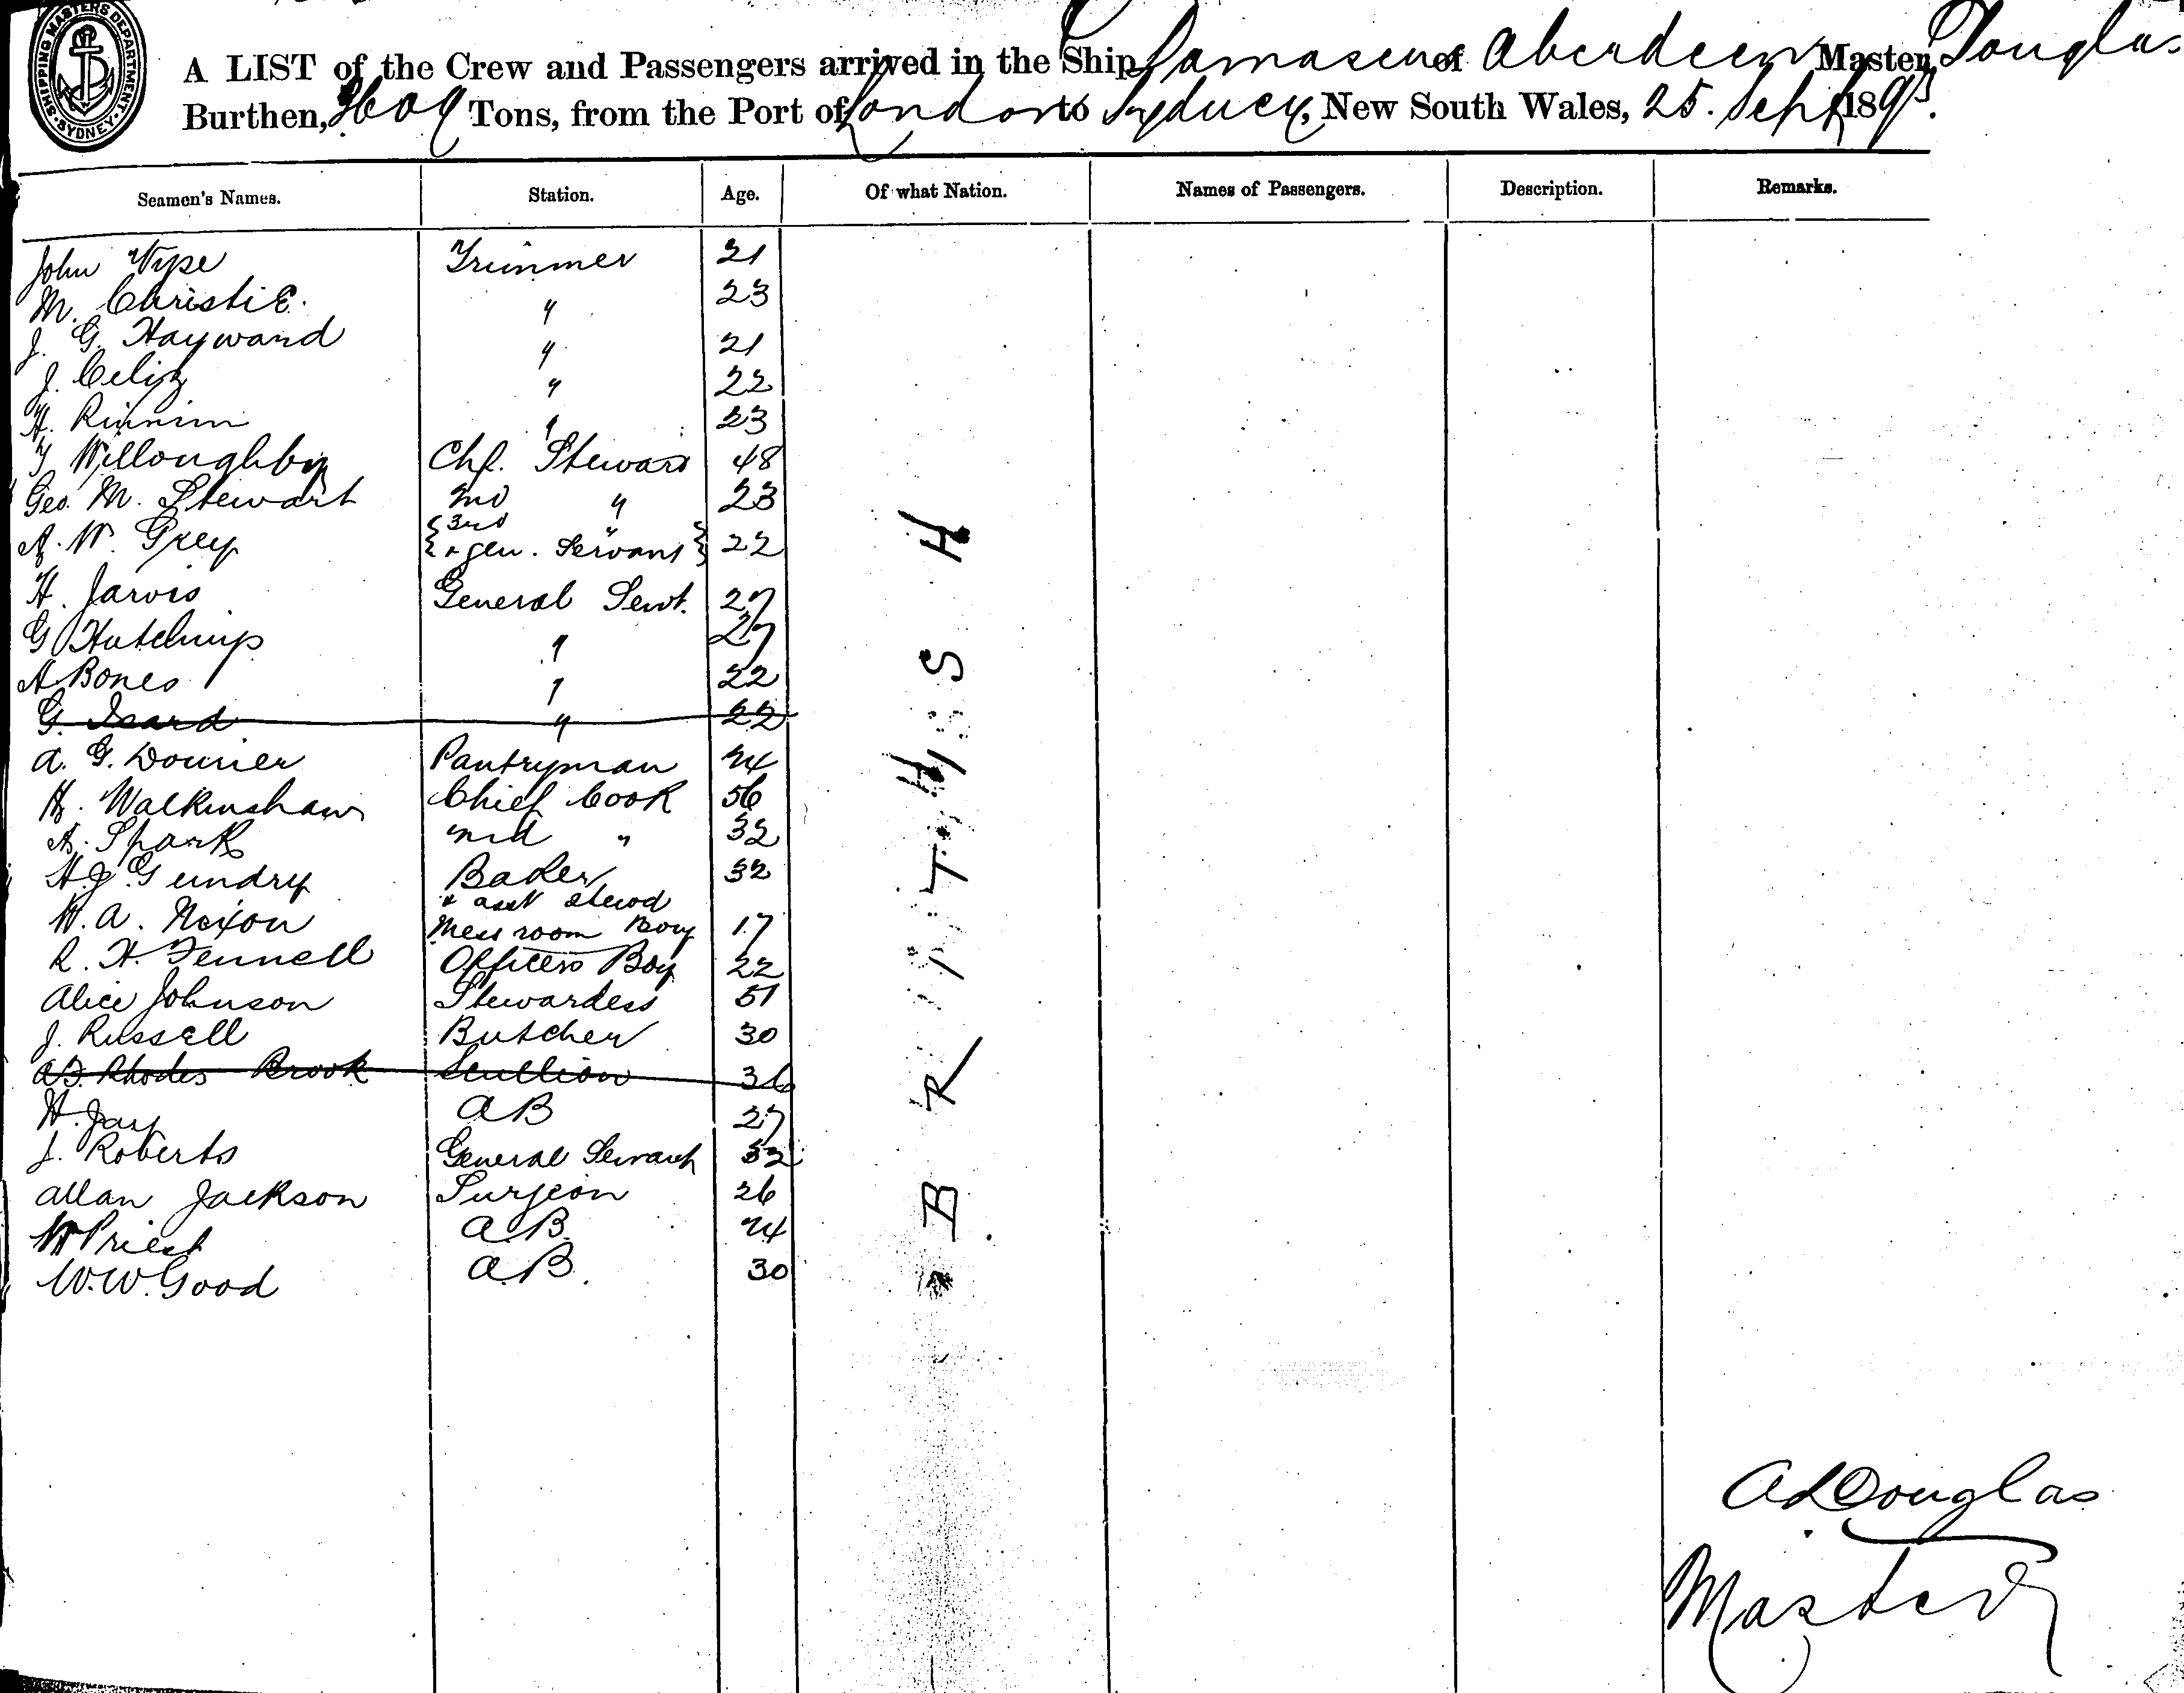 SHIPPING MASTERS DEPARTMENT · SYDNEY ·
A LIST of the Crew and Passengers arrived in the Ship Damascus of Aberdeen Master, Douglas
Burthen, 3609 Tons, from the Port of London to Sydney, New South Wales, 25. Sept 1893.
Seamen's Names. Station. Age. Of what Nation. Names of Passengers. Description. Remarks.
John Trimmer 21
M. Christie. " 23
J. G. Hayward " 21
J. " 22
H. " 23
Willoughby Chf. Steward 48
Geo. M. Stewart 2nd " 23
A. W. Grey { 3rd " & gen. Servant } 22
H. Jarvis General Servt. 27
G Hutchings " 27
A Bones " 22
G. Isard " 22
A. G. Pantryman 24
H. Walkinshaw Chief Cook 56
A. Spark 2nd " 32
H. J. Gundry Baker 32
& asst stewd
W. A. Nixon Mess room Boy 17
R. H. Fennell Officers Boy 22
Alice Johnson Stewardess 51
J. Russell Butcher 30
Rhodes Brook Scullion 36
H. Jay AB 27
J. Roberts General Servant 32
Allan Jackson Surgeon 26
W Priest A.B. 24
W. W. Good A.B. 30
BRITISH
A Douglas
Master